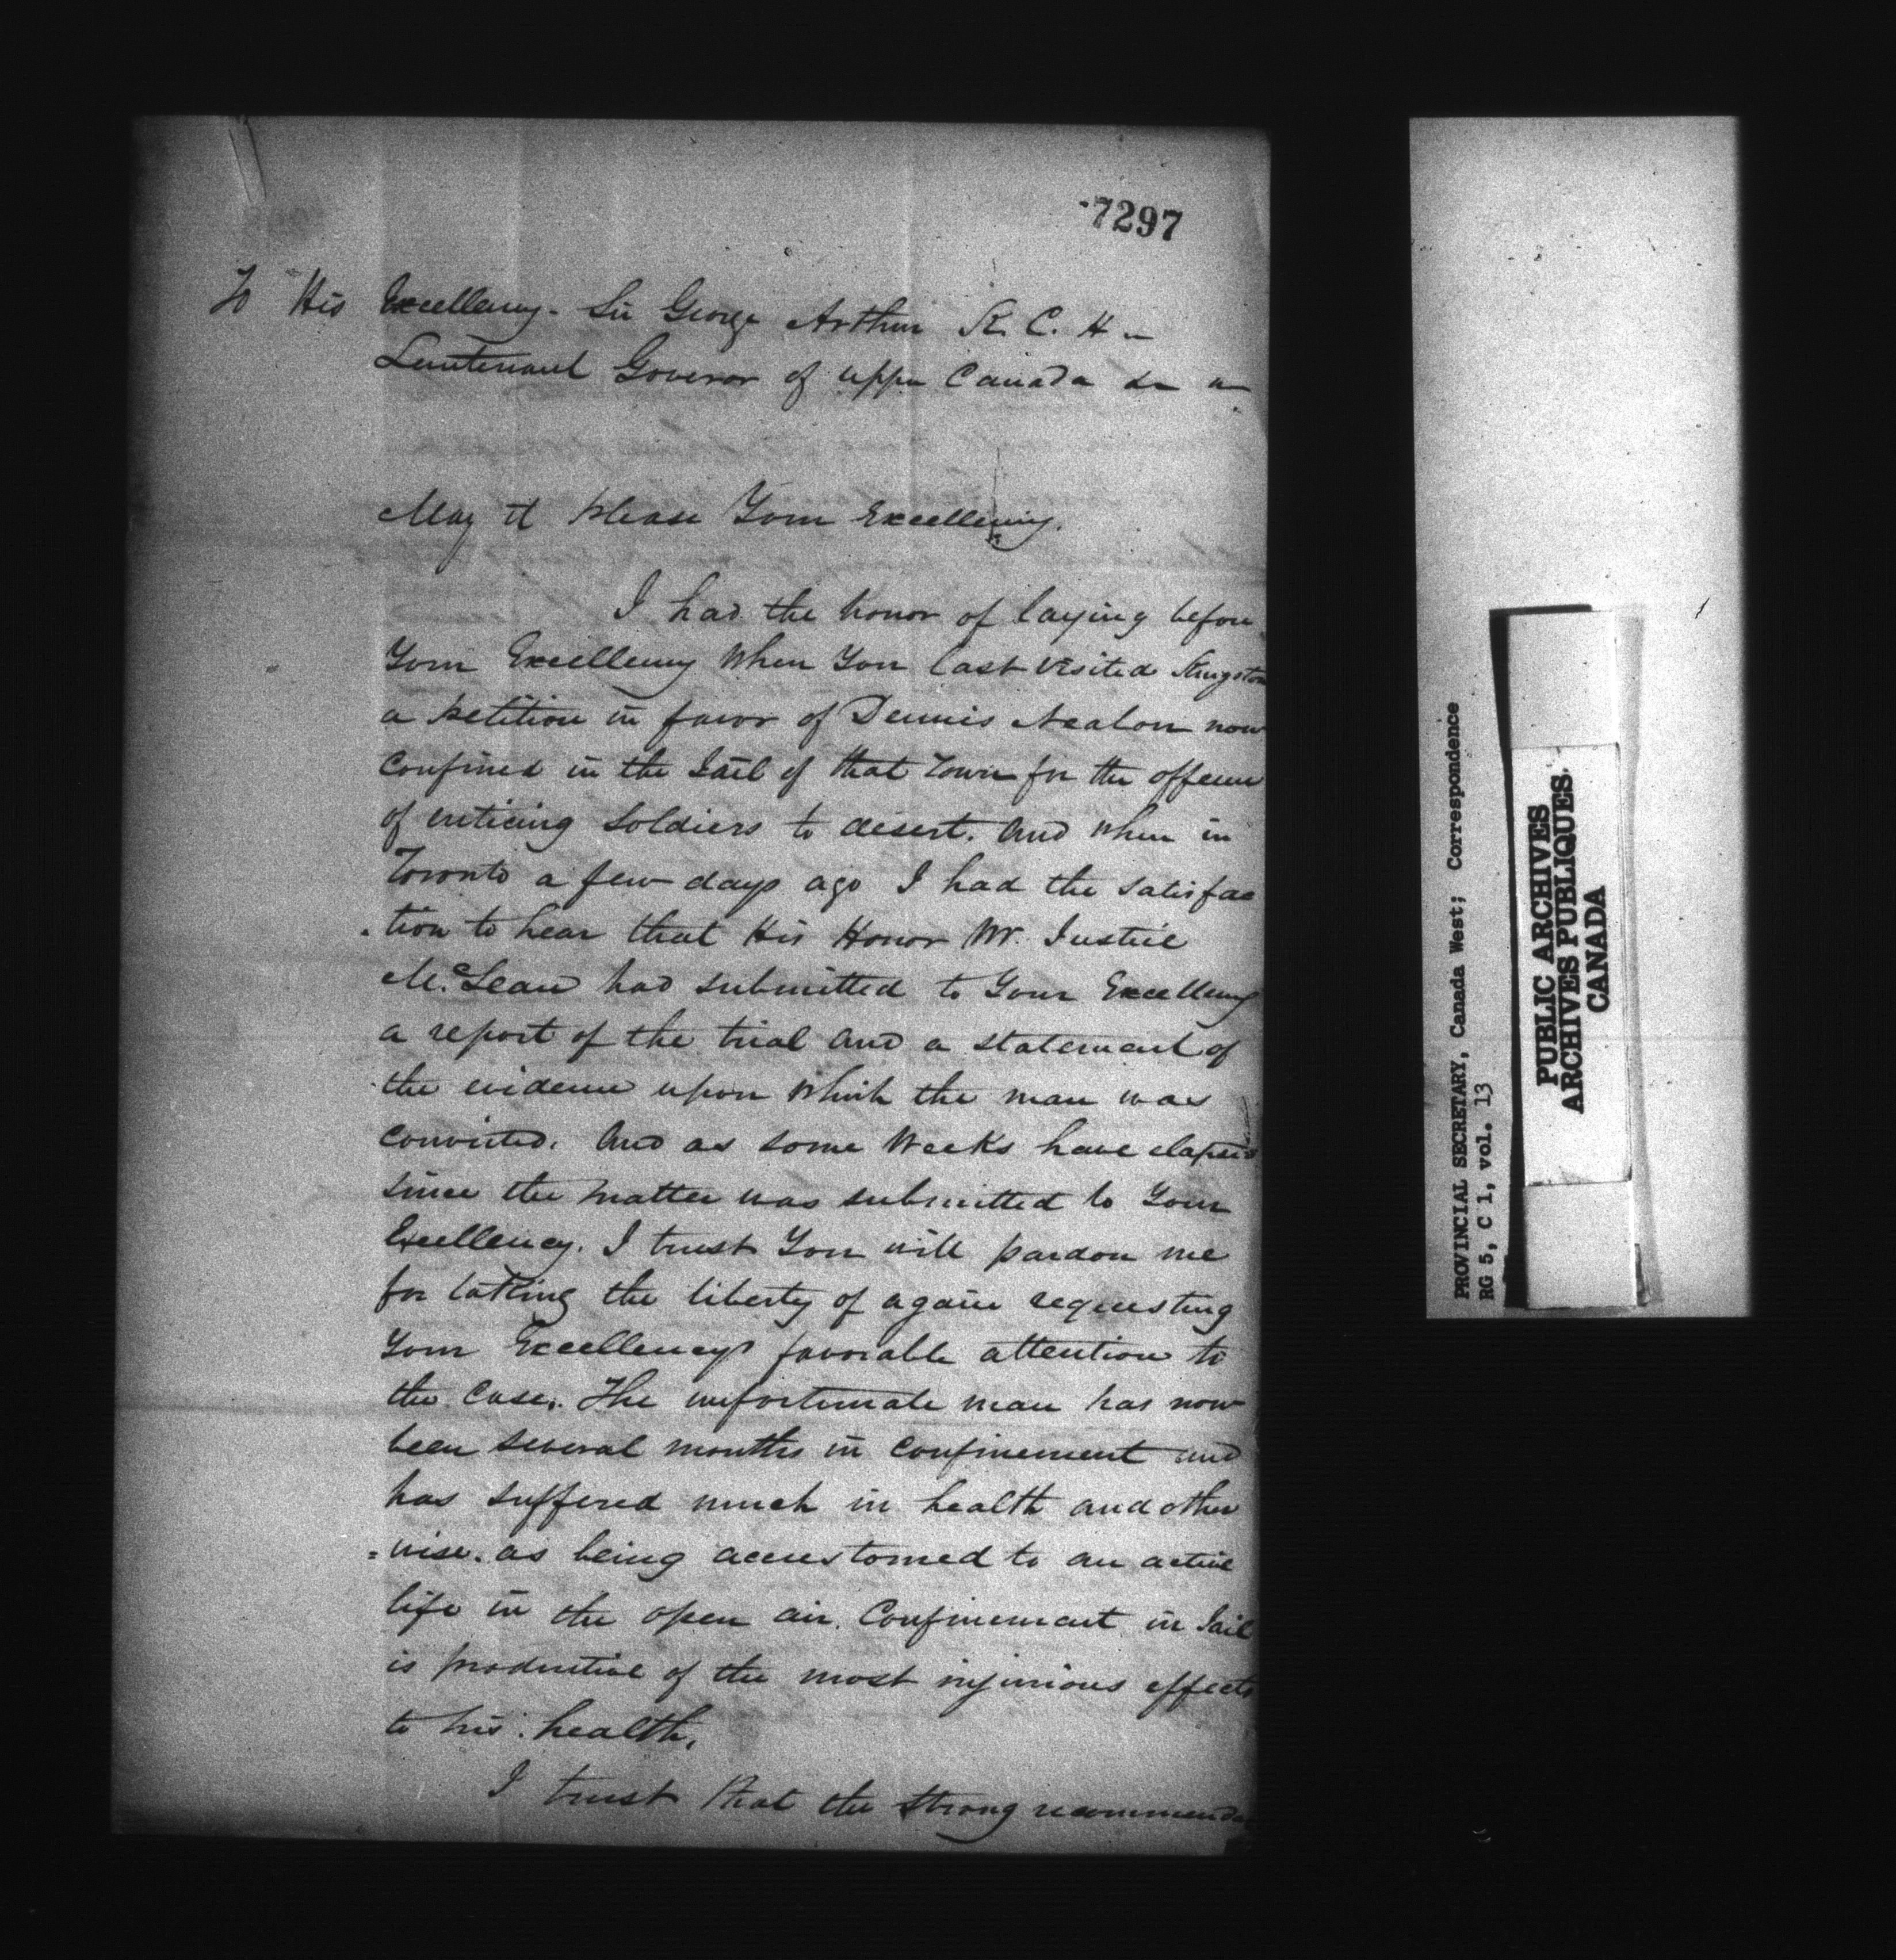 7297
To His Excellency. Sir George Arthur K. C. H
Lieutenant Goveror of upper Canada &c &c
May it please Your Excellency.
I had the honor of laying before
Your Excellency When You last visited Kingston
a petition in favor of Dennis Nealon now
confined in the Jail of that Town for the offence
of enticing soldiers to desert. And when in
Toronto a few days ago I had the satisfac
tion to hear that His Honor Mr. Justice
McLean had submitted to Your Excellency
a report of the trial and a statement of
the evidence upon which the man was
convicted. And as some Weeks have elapsed
since the matter was submitted to Your
Excellency. I trust You will pardon me
for taking the liberty of again requesting
Your Excellencys favorable attention to
the Case. The unfortunate man has now
been several months in confinement and
has suffered much in health and other
=wise. as being accustomed to an active
life in the open air. Confinement in Jail
is productive of the most injurious effects
to his health.
I trust that the strong recommenda
PROVINCIAL SECRETARY, Canada West; Correspondence
RG 5, C 1, vol. 13
PUBLIC ARCHIVES
ARCHIVES PUBLIQUES
CANADA